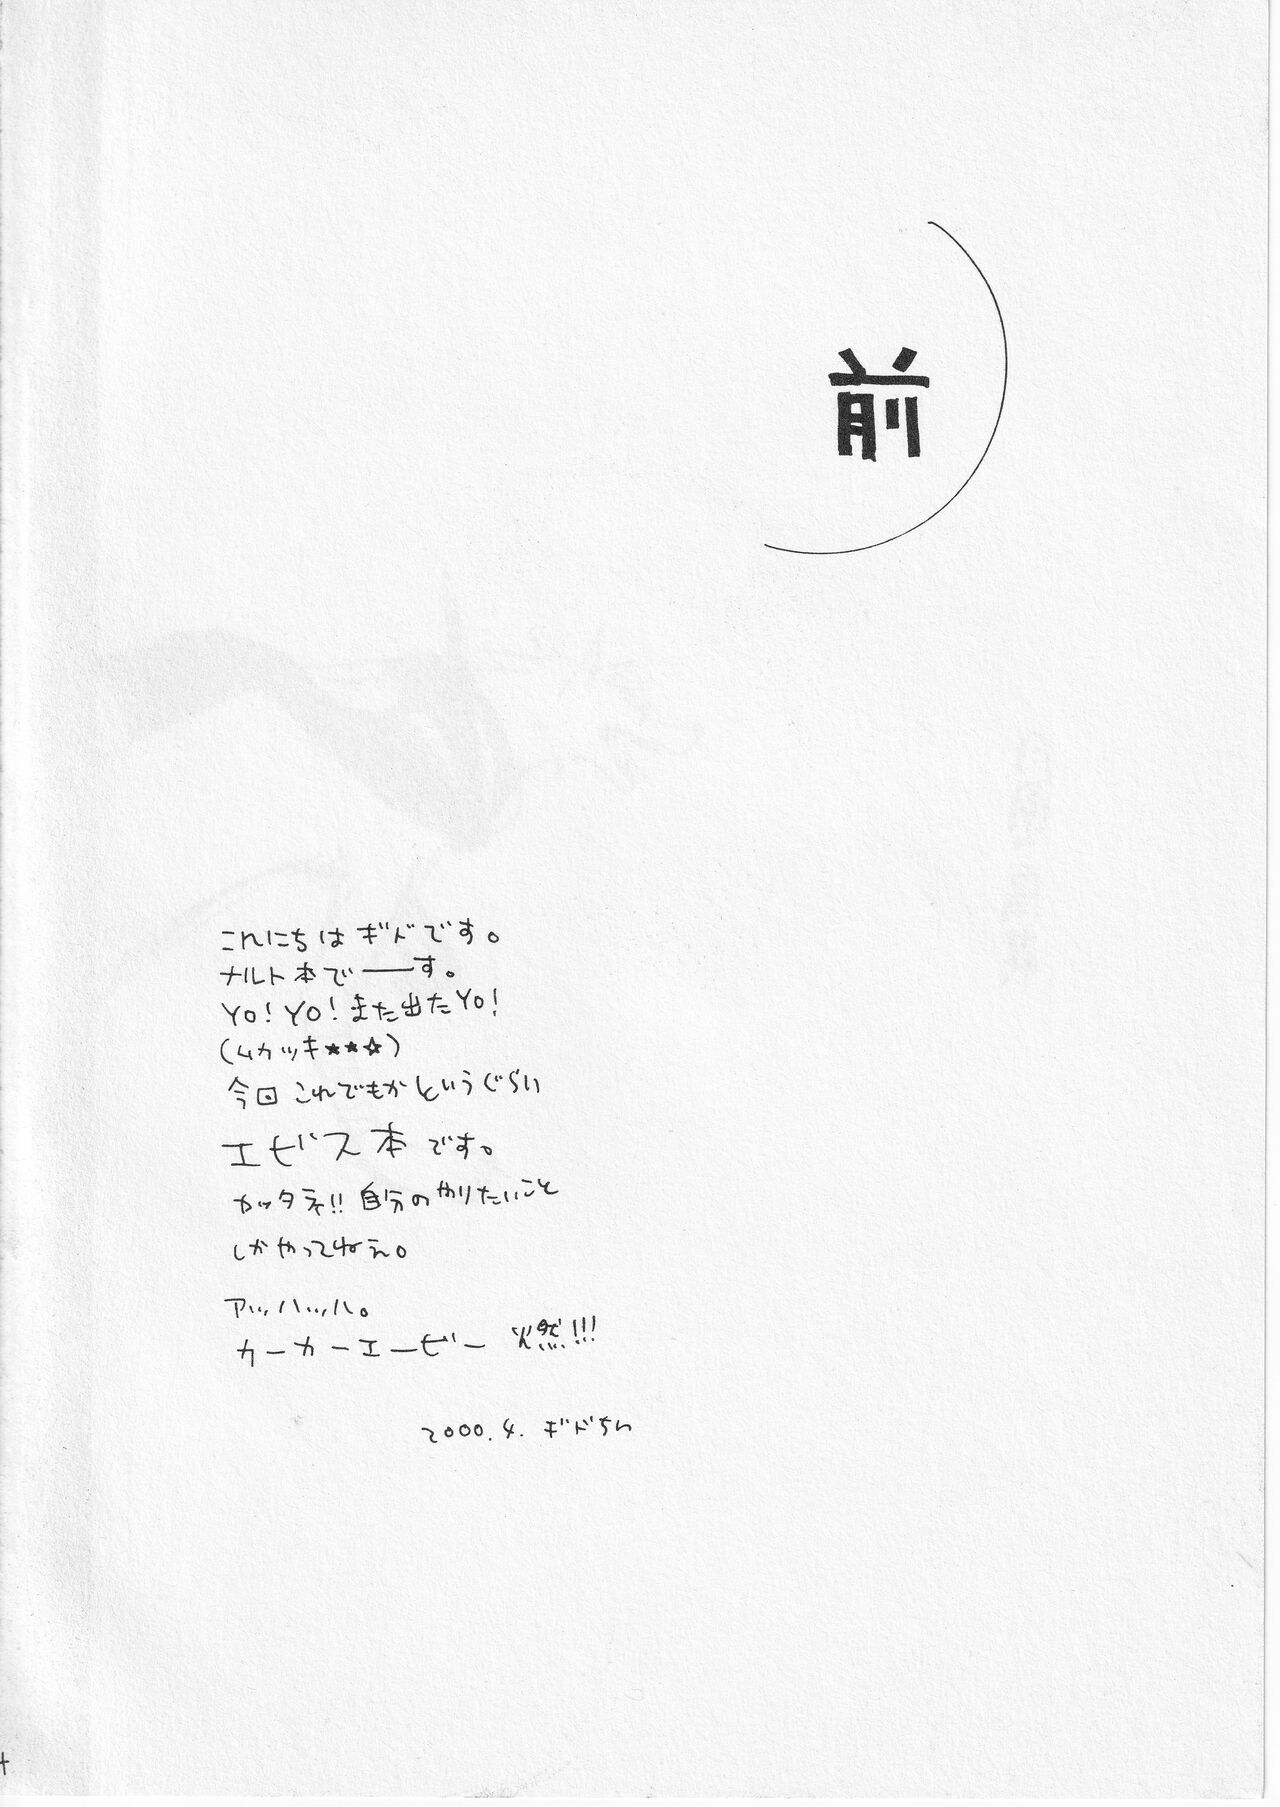 前
これにちは ギドです。
ナルト本で――す。
YO! YO! また出たYO!
(ムカツキ★★☆)
今回 これでもかというぐらい
エビス本です。
カッタネ!! 自分のやりたいこと
しかやってねえ。
アッハッハ。
カーカーエービー 燃!!!
2000.4. ギドちん